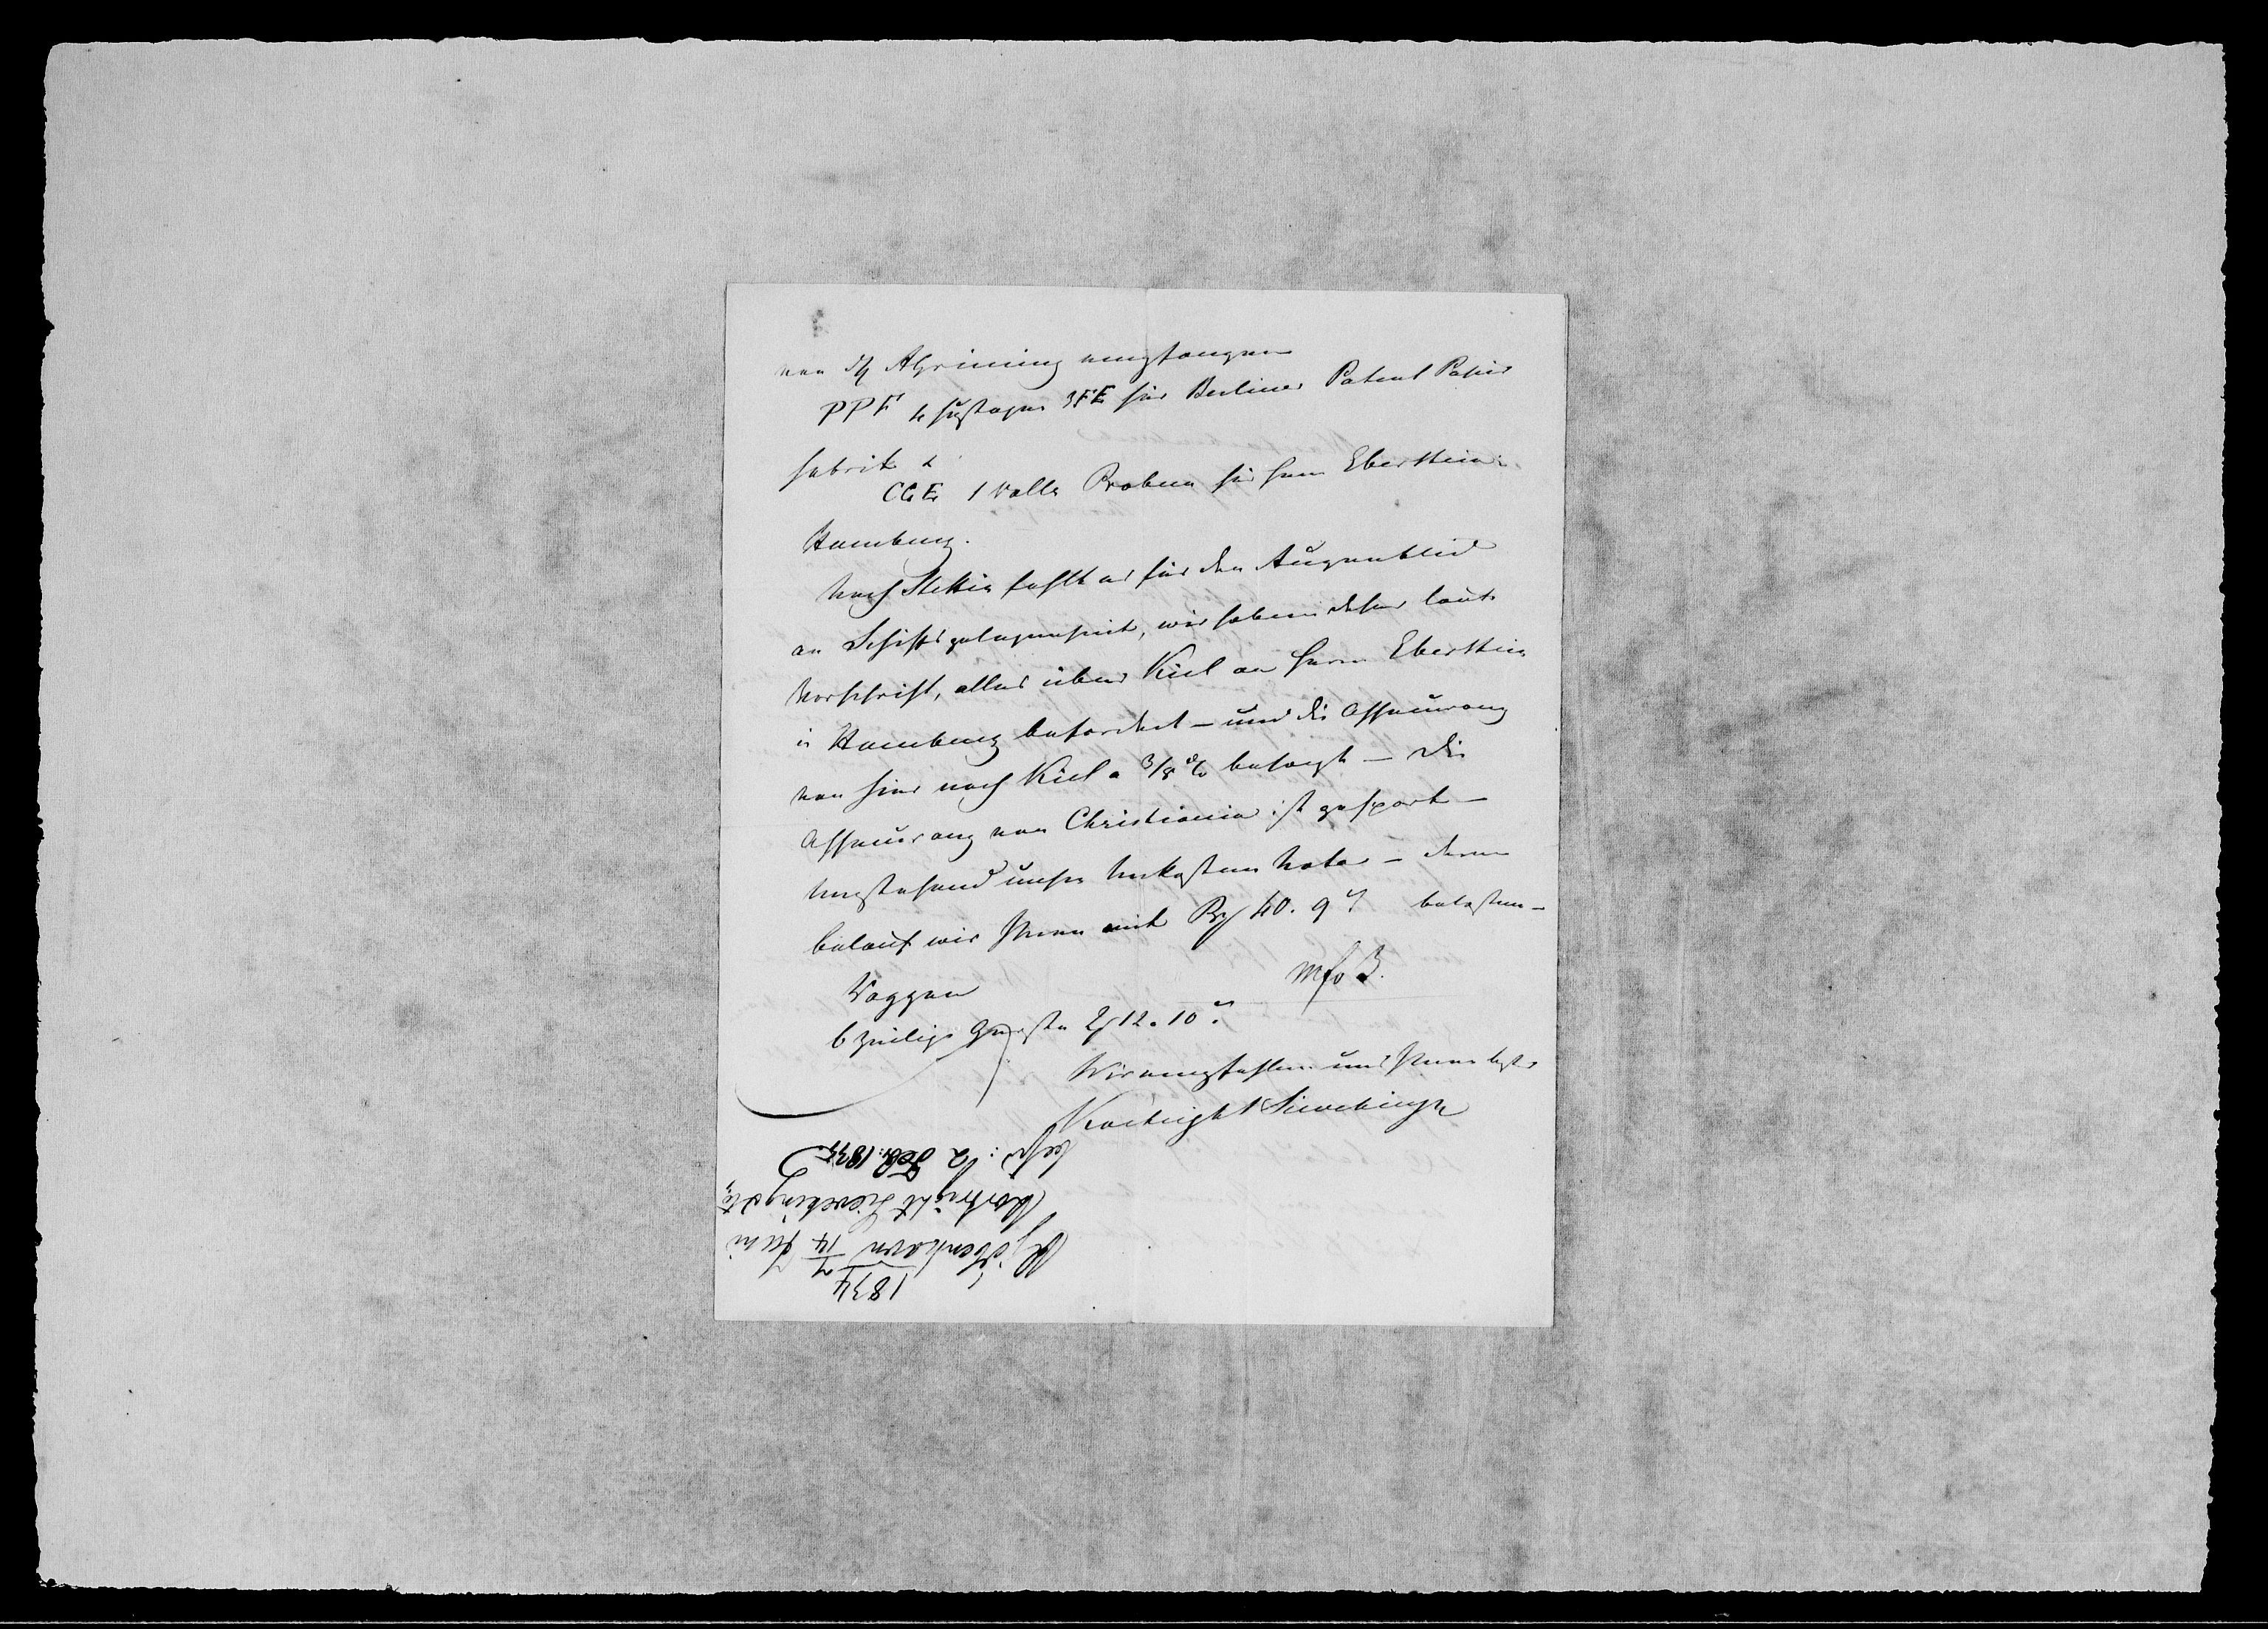 von empfangen
PPF 4 Fustagen 3FE für Berliner Patent Papier
fabrik &
CGE 1 Rolle Proben für Herrn Eberstein in
Hamburg.
Nach Stettin fehlt es für den Augenblick
an Schiffsgelegenheit, wir haben daher laut
Vorschrift, alles über Kiel an Herrn Eberstein
in Hamburg befördert – und die Assecuranz
von hier nach Kiel a 3/8 % besorgt – Die
Assecuranz von Christiania ist gespart –
Umstehend unsere Unkosten Nota – deren
Belauf wir Ihnen mit 40. 9 belasten –
Roggen
6 zeilige Gerste 12. 10
Wir empfehlen uns Ihnen
Kortright Sieveking &
1834
Kjöbenhavn 7/14 Juni
Kortright Sieveking & Co
besv: 2 Feb: 1835